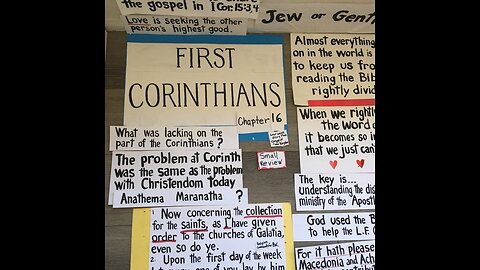 the gospel in 1 Cor. 15:3,4
Love is seeking the other
person's highest good.
Jew or Genti
FIRST
CORINTHIANS
Chapter 16
Almost everything
on in the world is
to keep us from
reading the Bib
rightly divid
What was lacking on the
part of the Corinthians ?
Small
Review
The problem at Corinth
was the same as the problem
with Christendom today
Anathema Maranatha ?
When we rightly
the Word o
it becomes so in
that we just can't
The key is...
understanding the dis
ministry of the Apost
1 Now concerning the collection
for the saints, as I have given
order to the churches of Galatia,
even so do ye.
2 Upon the first day of the week
let every one of you lay by him
God used the B
to help the L.F.
For it hath please
Macedonia and Ach